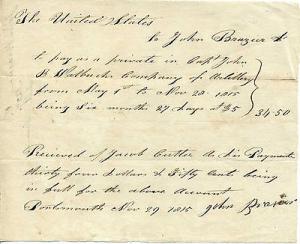 The United States
to John Brazier Dr
to pay as a private in Capt John
B Walbachs Company of Artillery
from May 1st to Nov 28. 1815
being Six months 27 days at $5
34.50
Received of Jacob Cutler Paymaster
thirty four Dollars & Fifty Cents being
in full for the above Account
Portsmouth Nov 29 1815 John Brazier